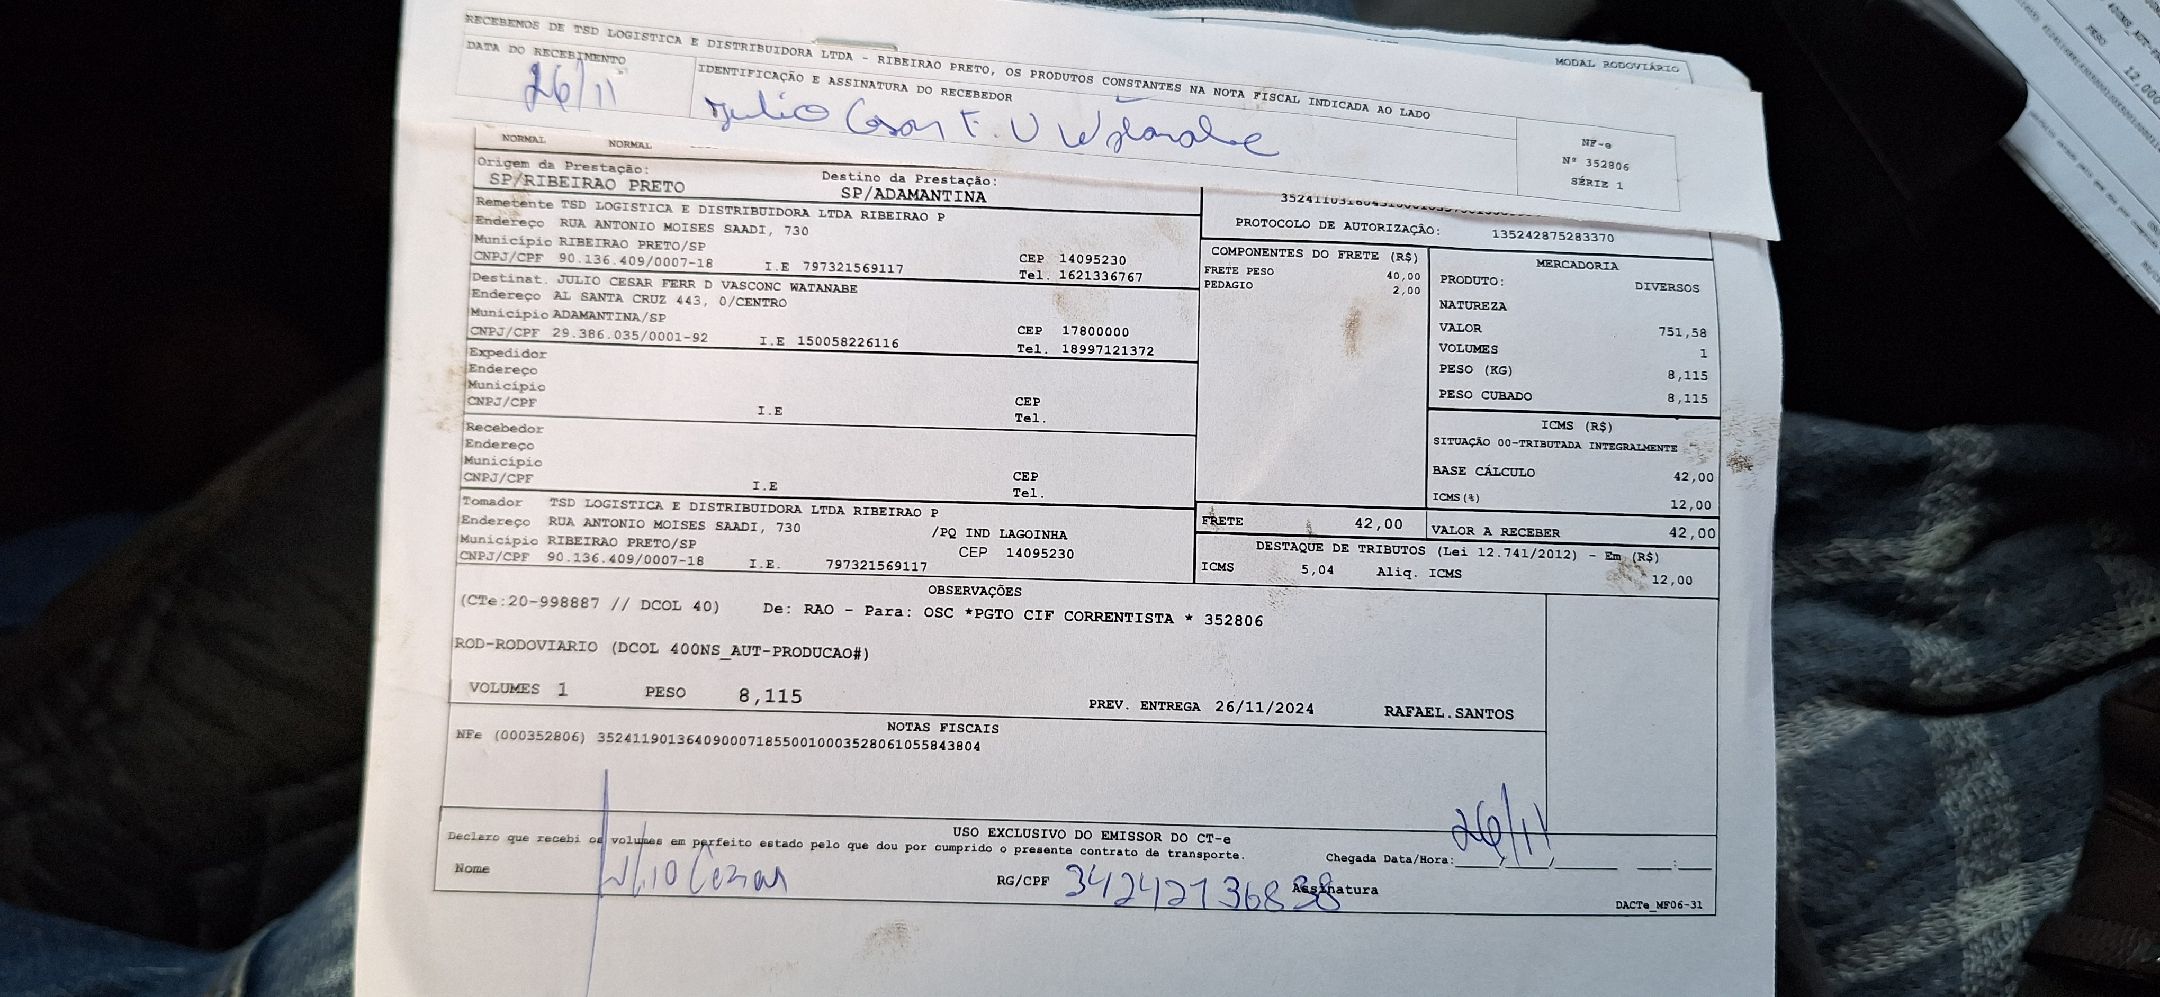 RECEBEMOS DE TSD LOGISTICA E DISTRIBUIDORA LTDA - RIBEIRAO PRETO, OS PRODUTOS CONSTANTES NA NOTA FISCAL INDICADA AO LADO
MODAL RODOVIÁRIO
DATA DO RECEBIMENTO
26/11
IDENTIFICAÇÃO E ASSINATURA DO RECEBEDOR
NF-e
Nº 352806
SÉRIE 1
NORMAL NORMAL
Origem da Prestação:
SP/RIBEIRAO PRETO
Destino da Prestação:
SP/ADAMANTINA
Remetente TSD LOGISTICA E DISTRIBUIDORA LTDA RIBEIRAO P
Endereço RUA ANTONIO MOISES SAADI, 730
Município RIBEIRAO PRETO/SP CEP 14095230
CNPJ/CPF 90.136.409/0007-18 I.E 797321569117 Tel. 1621336767
Destinat. JULIO CESAR FERR D VASCONC WATANABE
Endereço AL SANTA CRUZ 443, 0/CENTRO
Município ADAMANTINA/SP CEP 17800000
CNPJ/CPF 29.386.035/0001-92 I.E 150058226116 Tel. 18997121372
Expedidor
Endereço
Município CEP
CNPJ/CPF I.E Tel.
Recebedor
Endereço
Município CEP
CNPJ/CPF I.E Tel.
Tomador TSD LOGISTICA E DISTRIBUIDORA LTDA RIBEIRAO P
Endereço RUA ANTONIO MOISES SAADI, 730 /PQ IND LAGOINHA
Município RIBEIRAO PRETO/SP CEP 14095230
CNPJ/CPF 90.136.409/0007-18 I.E. 797321569117
PROTOCOLO DE AUTORIZAÇÃO: 135242875283370
COMPONENTES DO FRETE (R$)
FRETE PESO 40,00
PEDAGIO 2,00
MERCADORIA
PRODUTO: DIVERSOS
NATUREZA
VALOR 751,58
VOLUMES 1
PESO (KG) 8,115
PESO CUBADO 8,115
ICMS (R$)
SITUAÇÃO 00-TRIBUTADA INTEGRALMENTE
BASE CÁLCULO 42,00
ICMS(%) 12,00
FRETE 42,00 VALOR A RECEBER 42,00
DESTAQUE DE TRIBUTOS (Lei 12.741/2012) - Em (R$)
ICMS 5,04 Aliq. ICMS 12,00
OBSERVAÇÕES
(CTe:20-998887 // DCOL 40) De: RAO - Para: OSC *PGTO CIF CORRENTISTA * 352806
ROD-RODOVIARIO (DCOL 400NS_AUT-PRODUCAO#)
VOLUMES 1 PESO 8,115 PREV. ENTREGA 26/11/2024 RAFAEL.SANTOS
NOTAS FISCAIS
NFe (000352806) 35241190136409000718550010003528061055843804
USO EXCLUSIVO DO EMISSOR DO CT-e
Declaro que recebi os volumes em perfeito estado pelo que dou por cumprido o presente contrato de transporte.
Chegada Data/Hora: 26/11
Nome RG/CPF 34242136838 Assinatura
DACTe_MF06-31